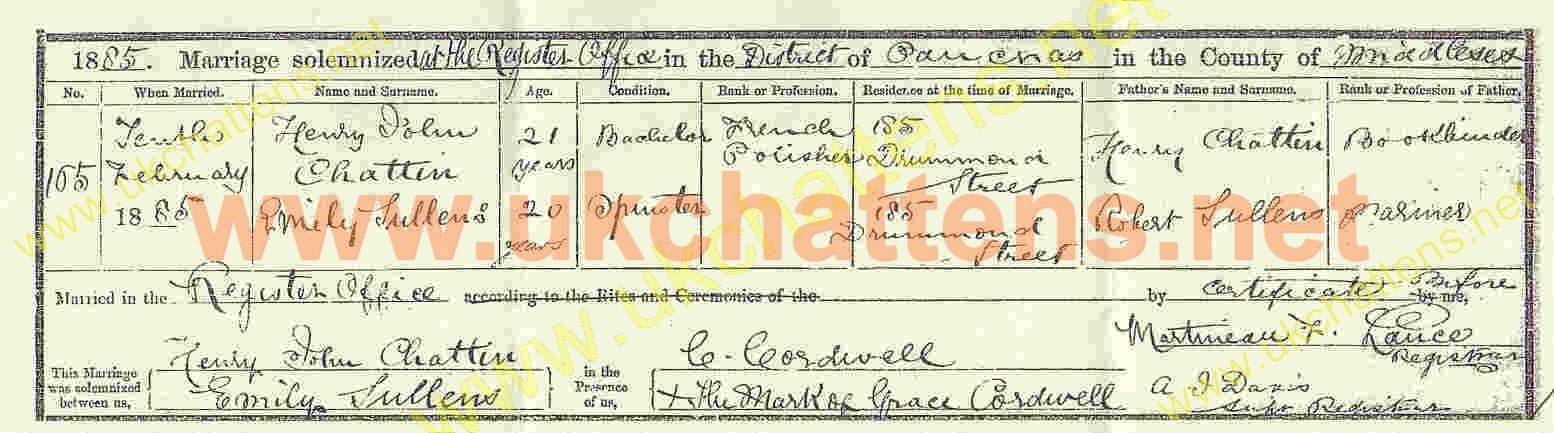 1885. Marriage solemnized at the Register Office in the District of Pancras in the County of Middlesex
No. When Married. Name and Surname. Age. Condition. Rank or Profession. Residence at the time of Marriage. Father's Name and Surname. Rank or Profession of Father.
165 Tenth February 1885 Henry John Chattin 21 years Bachelor French Polisher 185 Drummond Street Henry Chattin Bookbinder
Emily Sullens 20 years Spinster 185 Drummond Street Robert Sullens Mariner
Married in the Register Office according to the Rites and Ceremonies of the by certificate Before by me,
This Marriage was solemnized between us, Henry John Chattin Emily Sullens in the Presence of us, C. Cordwell X the Mark of Grace Cordwell
Martineau F. Lance Registrar
A J Davis Supt Registrar
www.ukchattens.net
www.ukchattens.net
www.ukchattens.net
www.ukchattens.net
www.ukchattens.net
www.ukchattens.net